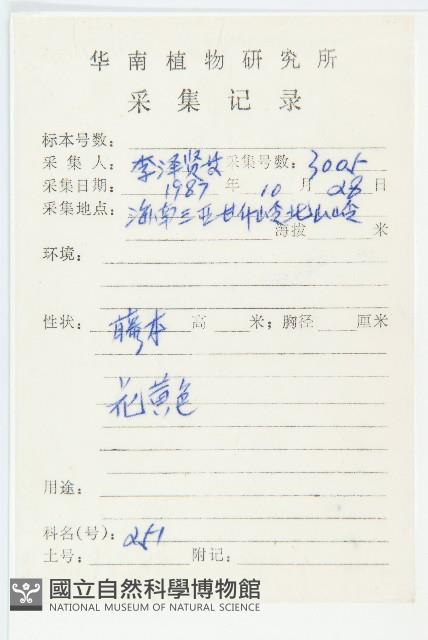 华南植物研究所
采集记录
标本号数:
采集人: 李泽贤 采集号数: 3005
采集日期: 1987 年 10 月 28 日
采集地点: 海南三亚甘什岭北山岭
海拔 米
环境:
性状: 藤本 高 米; 胸径 厘米
花黄色
用途:
科名(号): 251
土号: 附记:
國立自然科學博物館
NATIONAL MUSEUM OF NATURAL SCIENCE